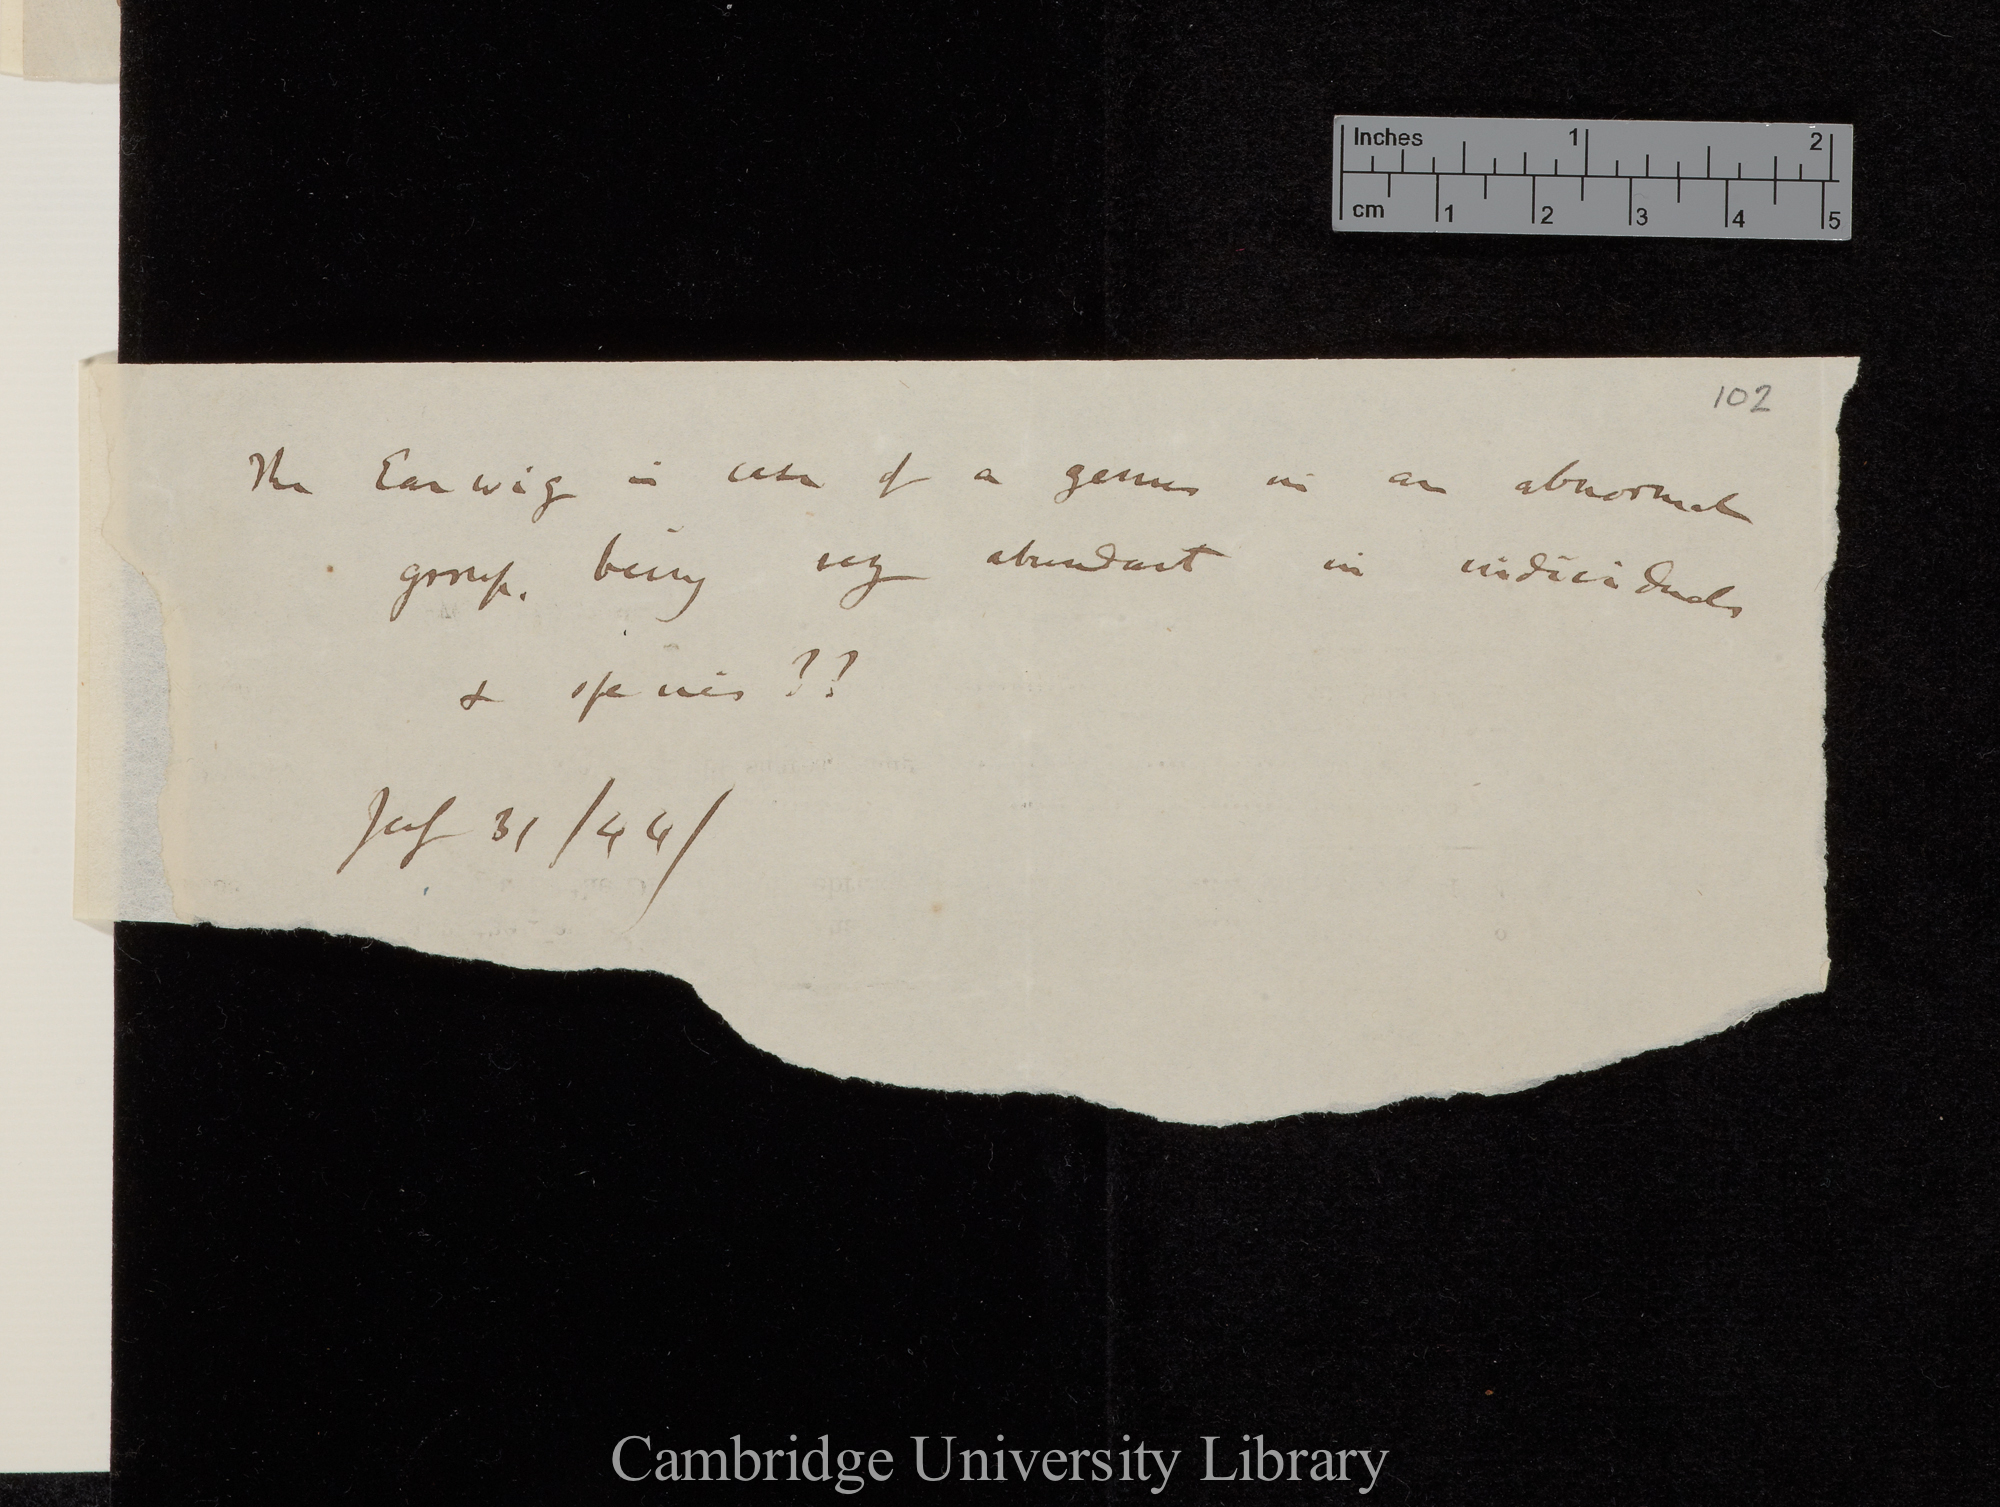 Inches 1 2
cm 1 2 3 4 5
102
The Earwig is case of a genus in an abnormal
group, being very abundant in individuals
& species ??
July 31/44/
Cambridge University Library